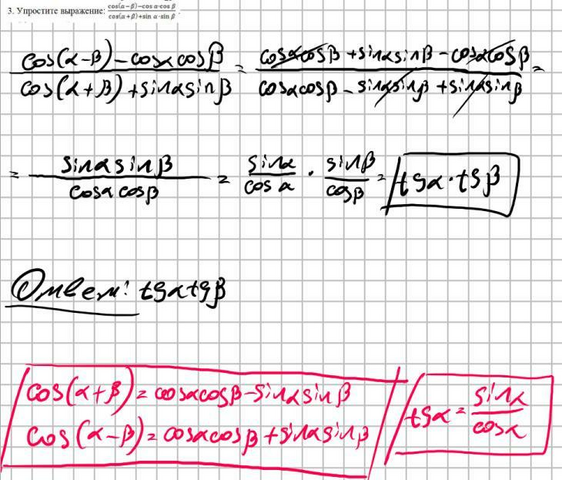 3. Упростите выражение: (cos(α−β)−cos α·cos β)/(cos(α+β)+sin α·sin β)
(cos(α-β)-cosαcosβ)/(cos(α+β)+sinαsinβ) = (cosαcosβ+sinαsinβ-cosαcosβ)/(cosαcosβ-sinαsinβ+sinαsinβ) =
= (sinαsinβ)/(cosαcosβ) = sinα/cosα · sinβ/cosβ = tgα·tgβ
Ответ: tgαtgβ
cos(α+β)=cosαcosβ-sinαsinβ
cos(α-β)=cosαcosβ+sinαsinβ
tgα=sinα/cosα